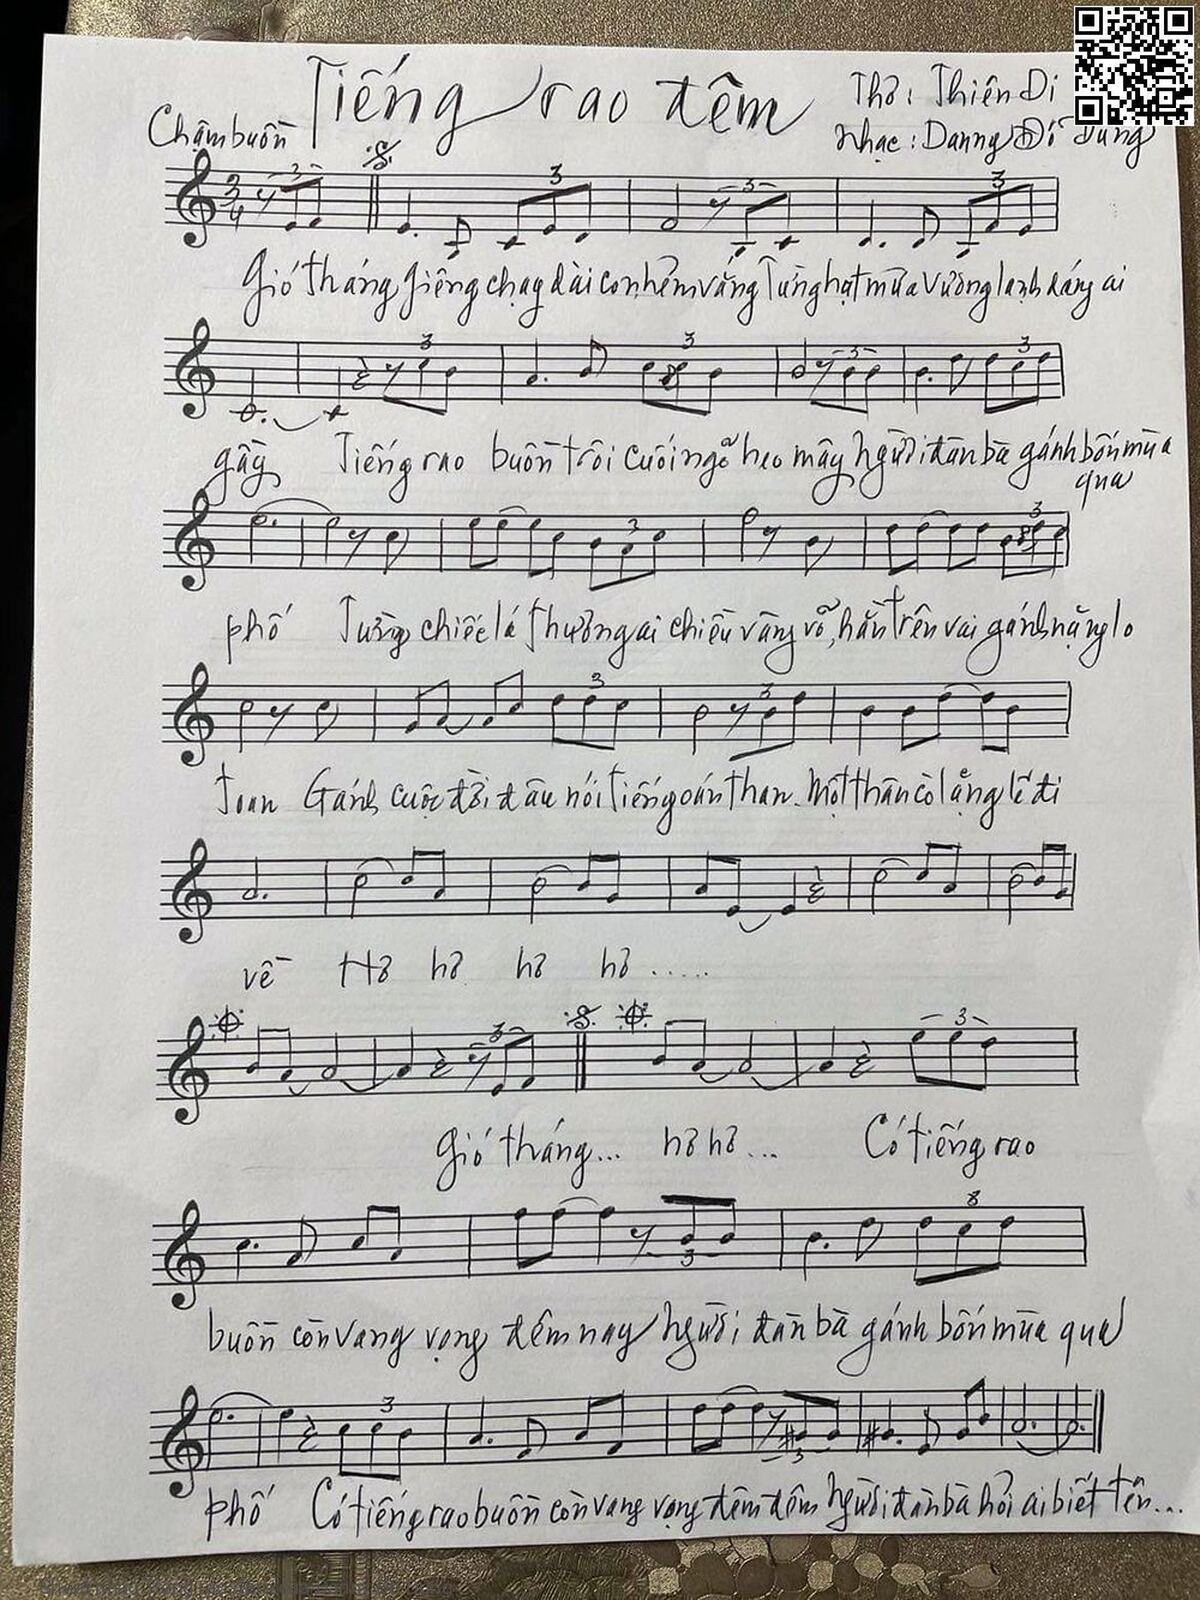 Tiếng rao đêm
Thơ: Thiên Di
Chậm buồn
Nhạc: Danny Đỗ Dũng
Gió tháng giêng chạy dài con hẻm vắng Từng hạt mưa vương lạnh dáng ai
gầy Tiếng rao buồn trôi cuối ngõ heo mây người đàn bà gánh bốn mùa
qua
phố Từng chiếc lá thương ai chiều vàng võ, hằn trên vai gánh nặng lo
toan Gánh cuộc đời đâu nói tiếng oán than. Một thân cò lặng lẽ đi
về Hờ hờ hờ hờ .....
Gió tháng... hờ hờ... Có tiếng rao
buồn còn vang vọng đêm nay người đàn bà gánh bốn mùa qua
phố Có tiếng rao buồn còn vang vọng đêm đêm người đàn bà hỏi ai biết tên...